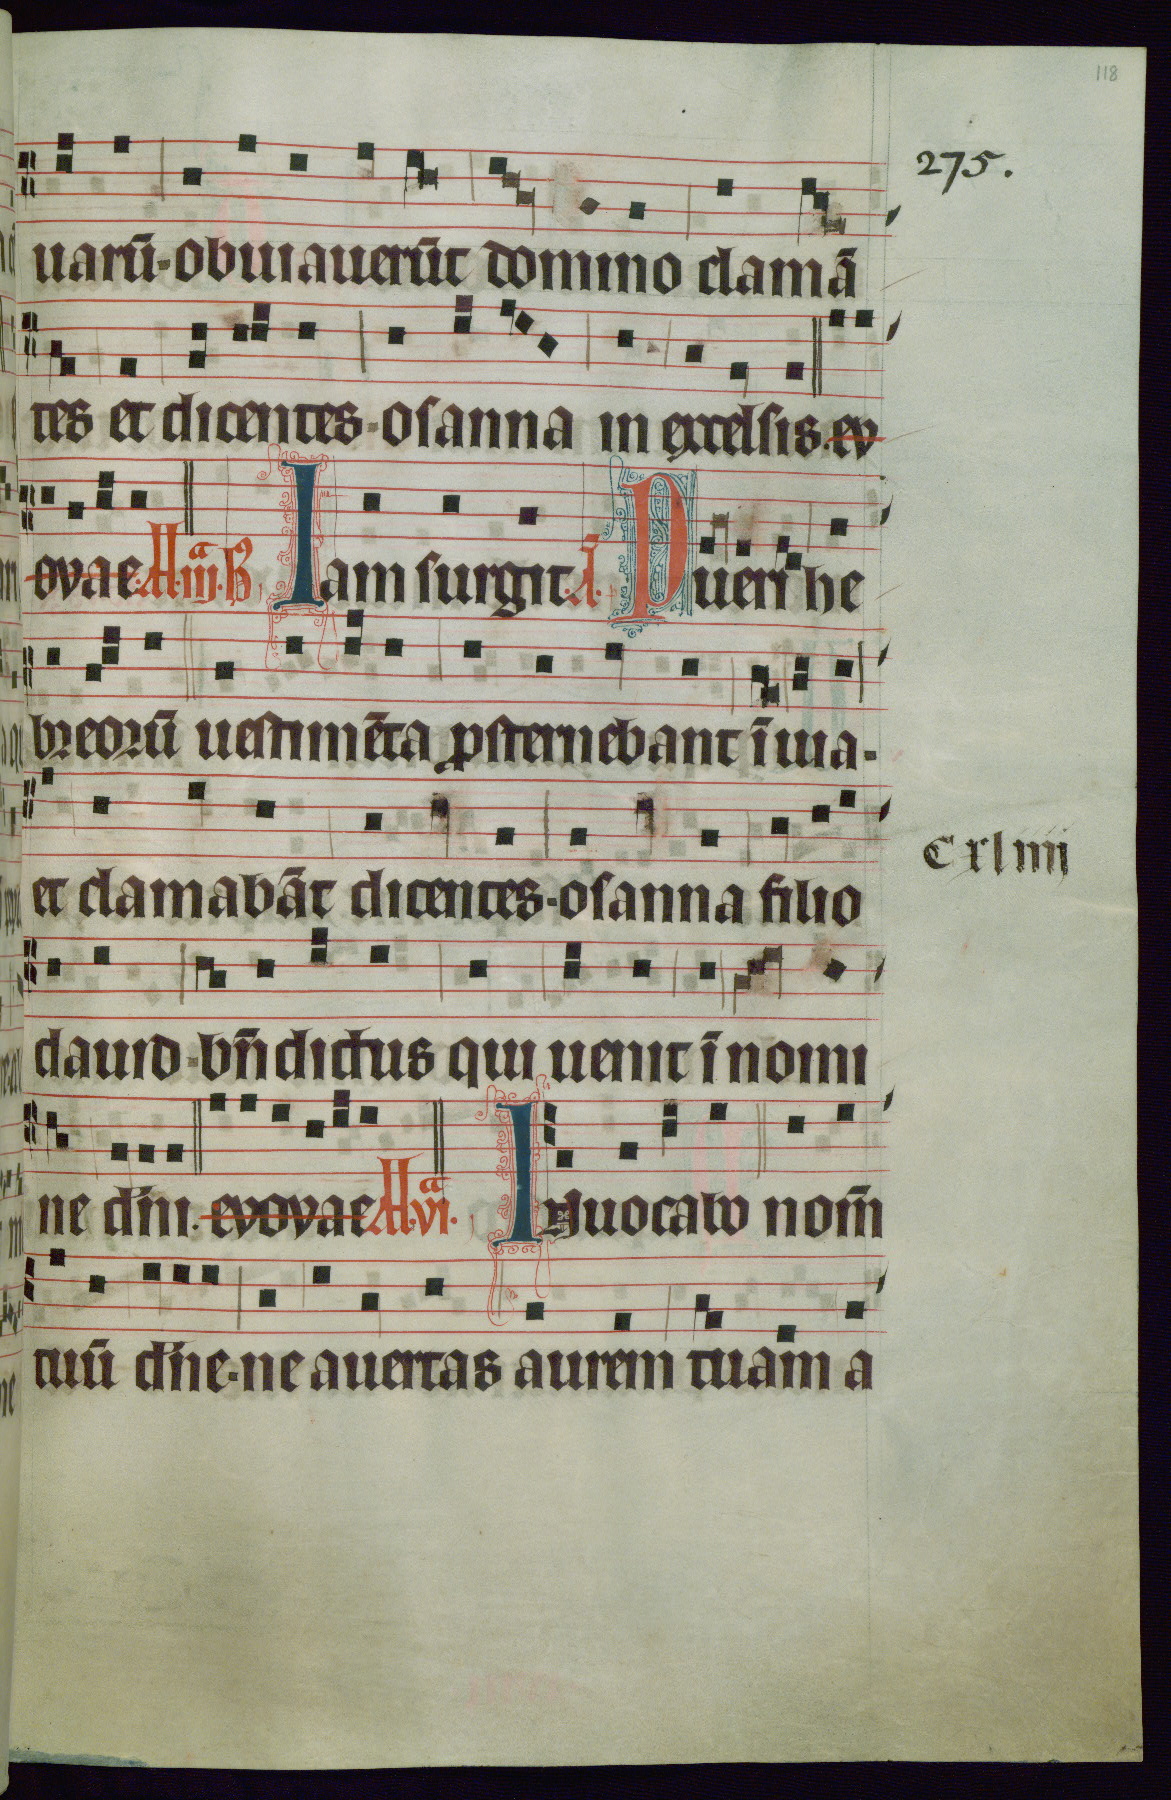 118
275.
uarū·obuiauerūt domino clamā
tes et dicentes·osanna in excelsis. ev
ovae A.iij.ᵃ B Iam surgit. A. Pueri he
breorū uestimēta ꝓsternebant ī uia·
Cxliiii
et clamabāt dicentes·osanna filio
dauid·bn̄dictus qui uenit ī nomi
ne dn̄i. evovae A.vi.ᵃ Inuocabo nom̄
tuū dn̄e·ne auertas aurem tuam a